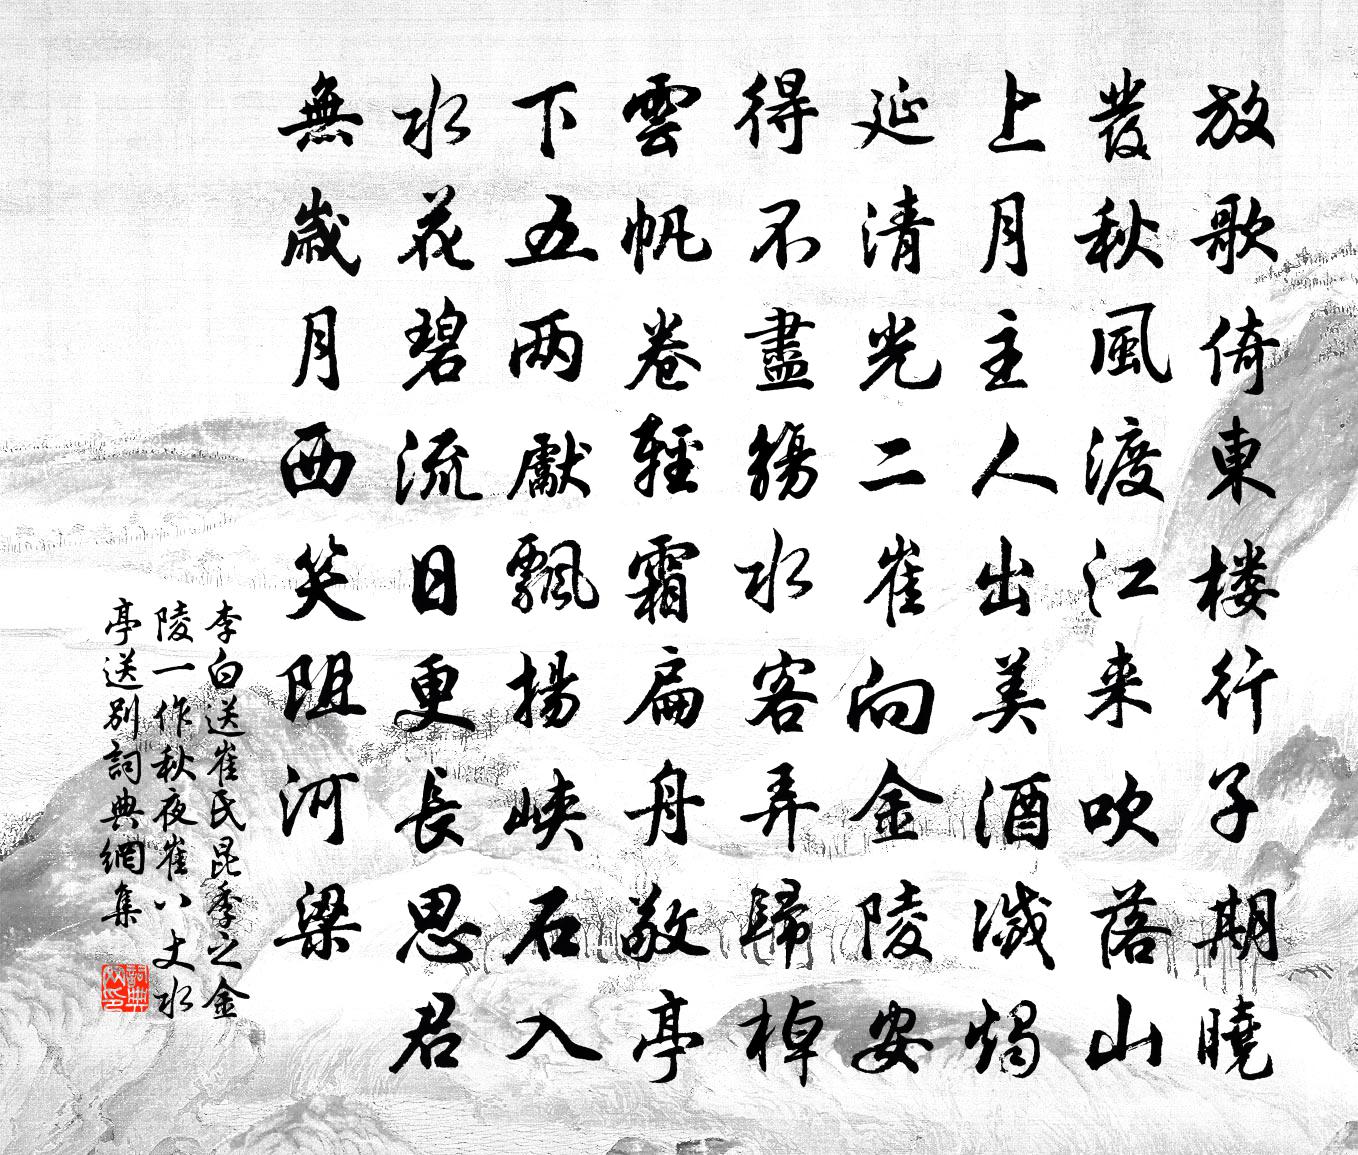 放歌倚東楼行子期曉
發秋風渡江来吹落山
上月主人出美酒滅燭
延清光二崔向金陵安
得不盡觴水客弄歸棹
雲帆卷輕霜扁舟敬亭
下五两獻飄揚峽石入
水花碧流日更長思君
無歲月西笑阻河梁
李白送崔氏昆季之金
陵一作秋夜崔八丈水
亭送别詞典網集